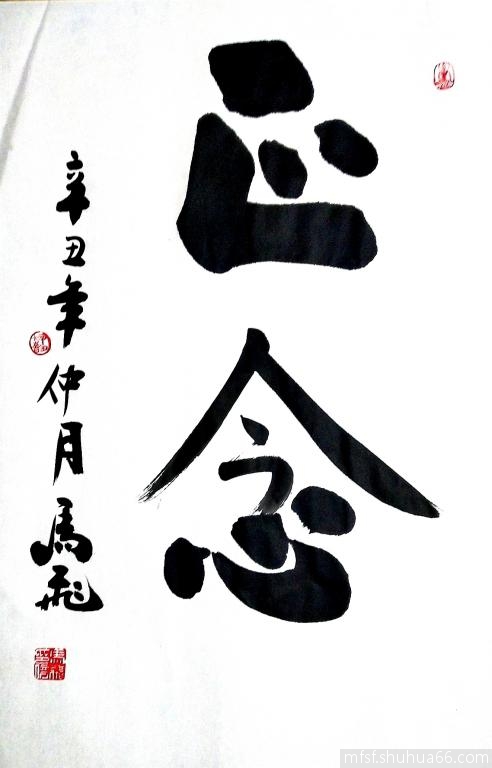 正念
辛丑年仲月馬飛
mfsf.shuhua66.com